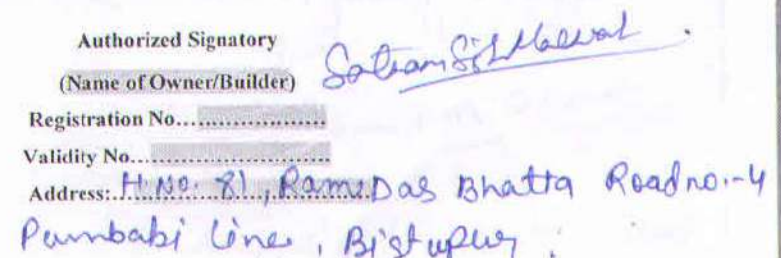 Authorized Signatory
(Name of Owner/Builder)
Registration No.....................
Validity No.............................
Address: H.No. 81, Ramdas Bhatta Road no.-4
line, Bistupur.